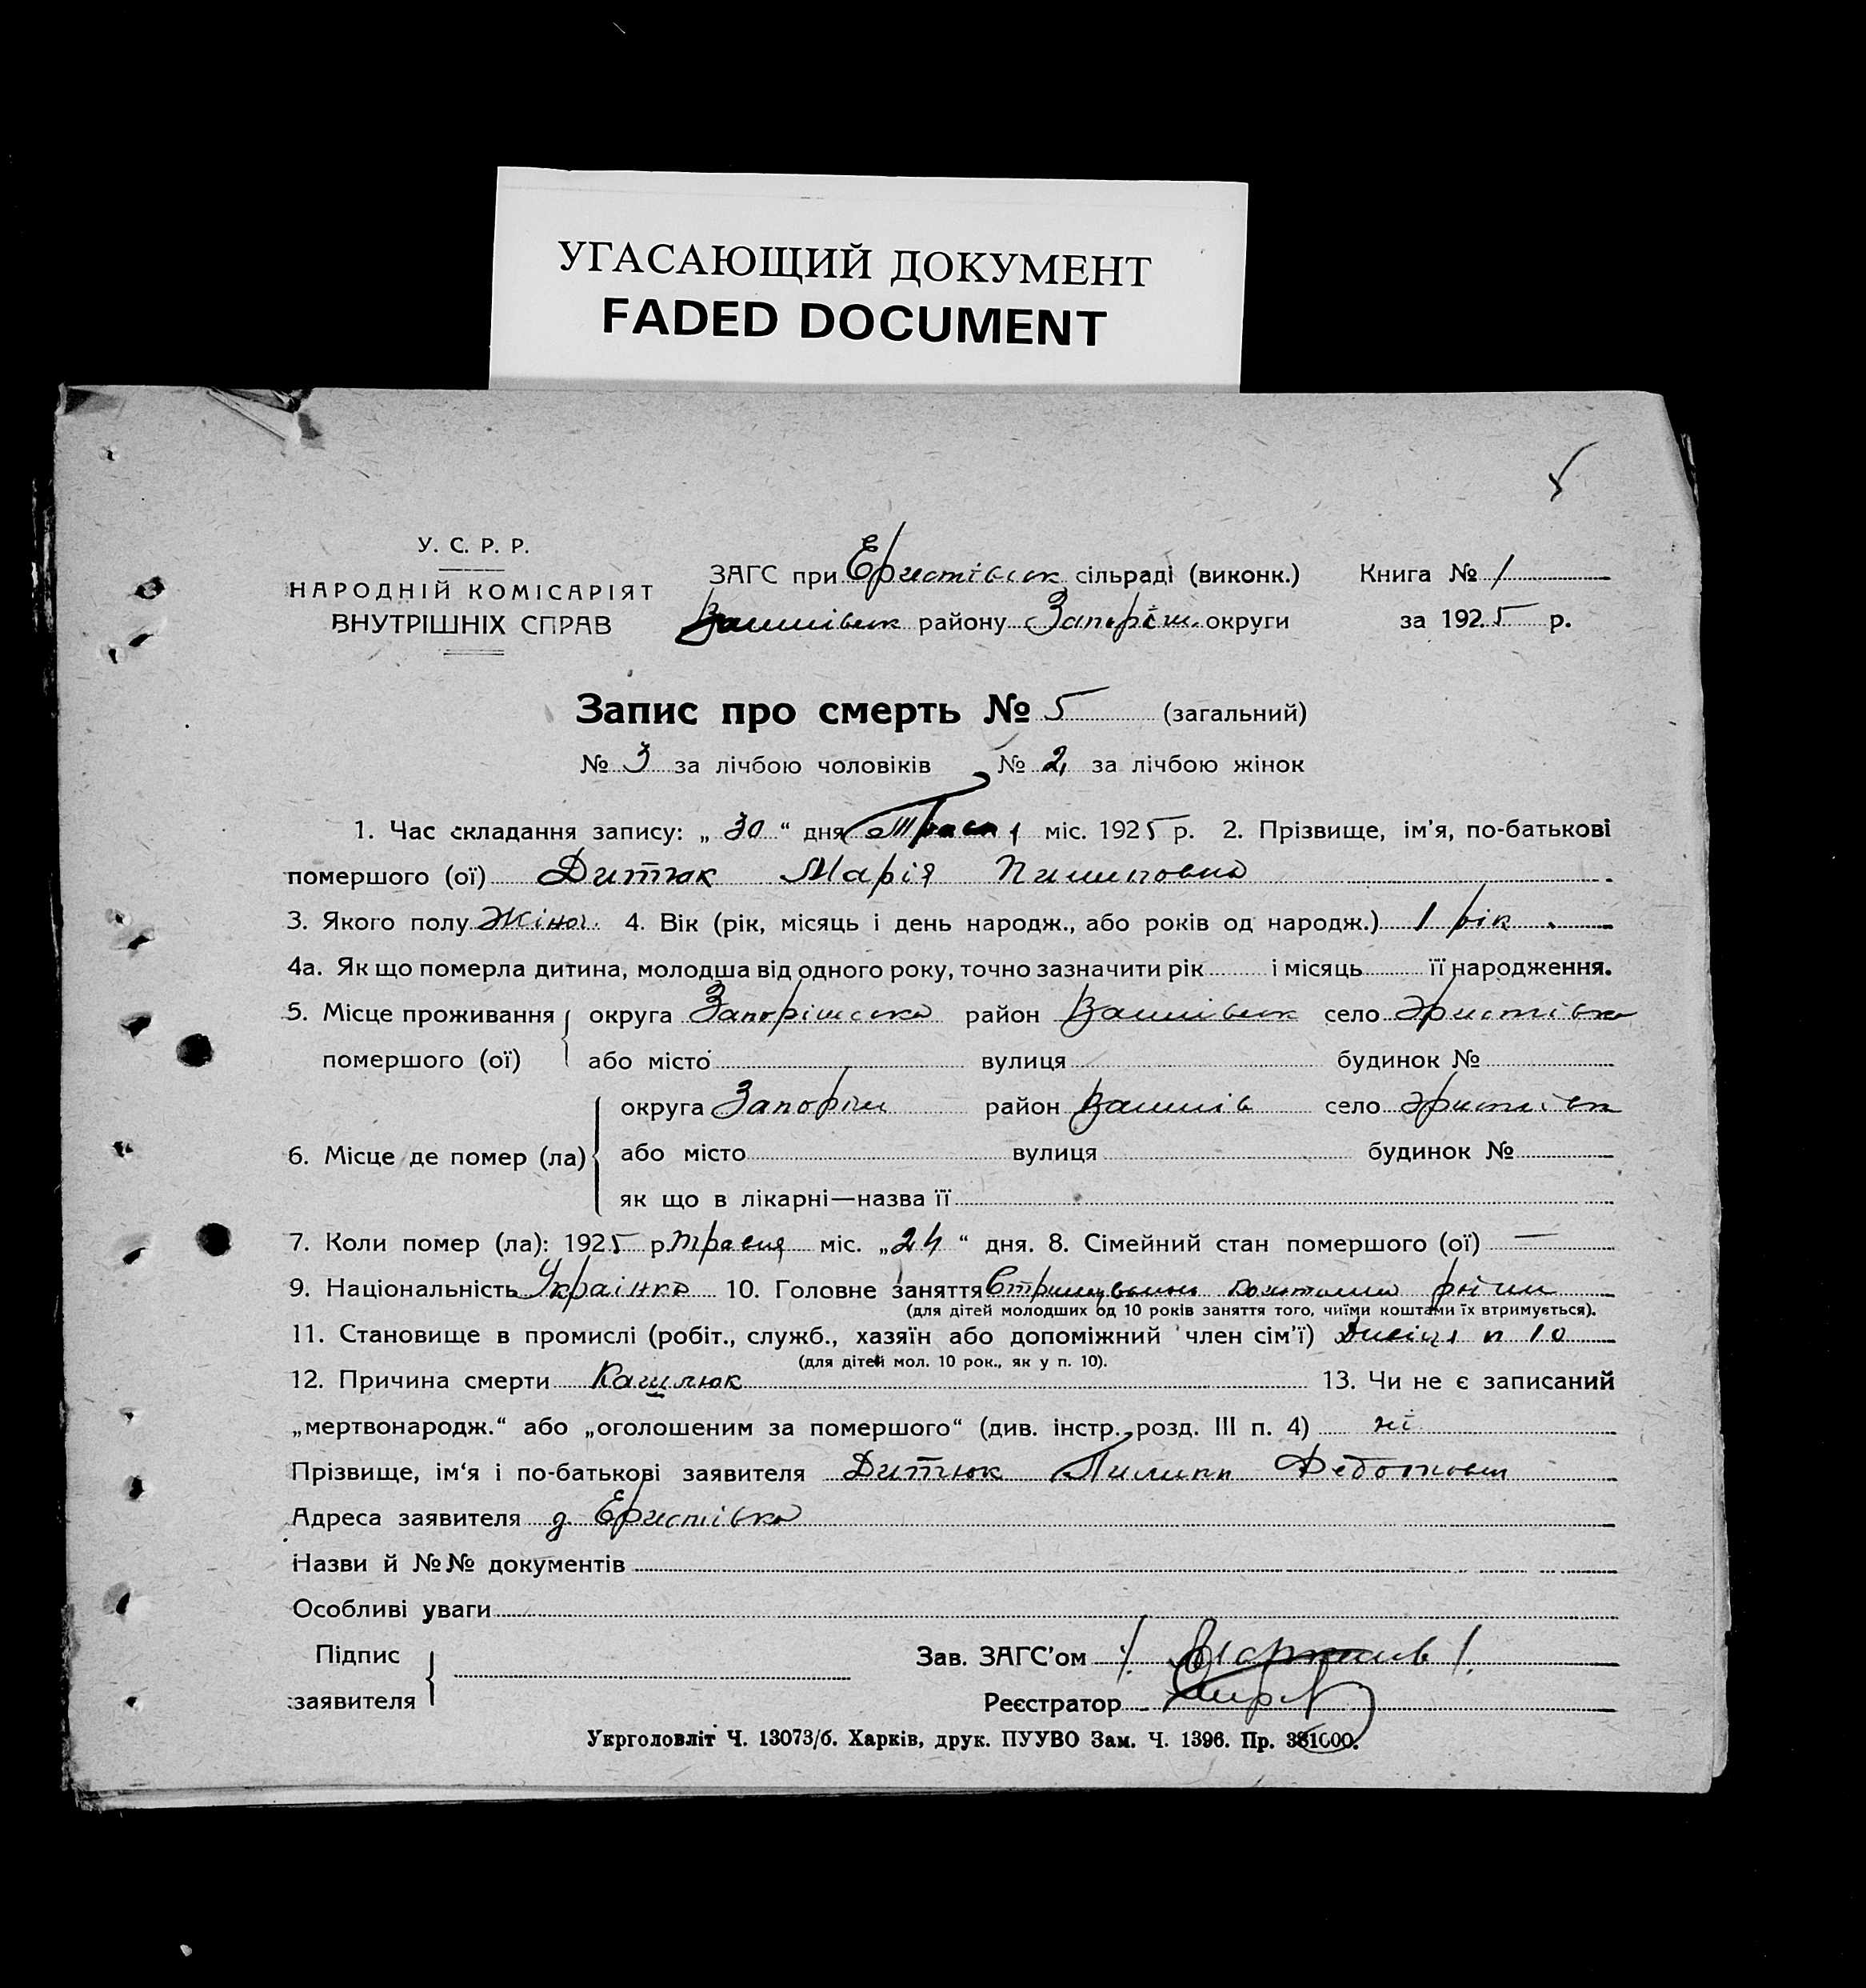 УГАСАЮЩИЙ ДОКУМЕНТ
FADED DOCUMENT
У. С. Р. Р.
НАРОДНІЙ КОМІСАРІЯТ
ВНУТРІШНІХ СПРАВ
ЗАГС при Еристівськ сільраді (виконк.)
района району Запоріш. округи
Книга № 1
за 1925 р.
Запис про смерть № 5 (загальний)
№ 3 за лічбою чоловіків № 2 за лічбою жінок
1. Час складання запису: „ 30 “ дня міс. 1925 р. 2. Прізвище, ім’я, по-батькові
помершого (ої) Дитюк Марія Пилиповна
3. Якого полу Жіноч. 4. Вік (рік, місяць і день народж., або років од народж.) 1 рік
4а. Як що померла дитина, молодша від одного року, точно зазначити рік і місяць її народження.
5. Місце проживання помершого (ої) округа Запорішська район село Эристівка
або місто вулиця будинок №
6. Місце де помер (ла) округа Запоріш район село Эристівк
або місто вулиця будинок №
як що в лікарні—назва її
7. Коли помер (ла): 1925 р. травня міс. „24 “ дня. 8. Сімейний стан помершого (ої) —
9. Національність Українка 10. Головне заняття
(для дітей молодших од 10 років заняття того, чиїми коштами їх втримується).
11. Становище в промислі (робіт., служб., хазяїн або допоміжний член сім’ї) п 10
(для дітей мол. 10 рок., як у п. 10).
12. Причина смерти Кашлюк 13. Чи не є записаний
„мертвонародж.“ або „оголошеним за помершого“ (див. інстр. розд. III п. 4) ні
Прізвище, ім‘я і по-батькові заявителя Дитюк Пилипп Федотович
Адреса заявителя д. Еристівка
Назви й №№ документів
Особливі уваги
Підпис заявителя
Зав. ЗАГС’ом
Реєстратор
Укрголовліт Ч. 13073/б. Харків, друк. ПУУВО Зам. Ч. 1396. Пр. 381000.